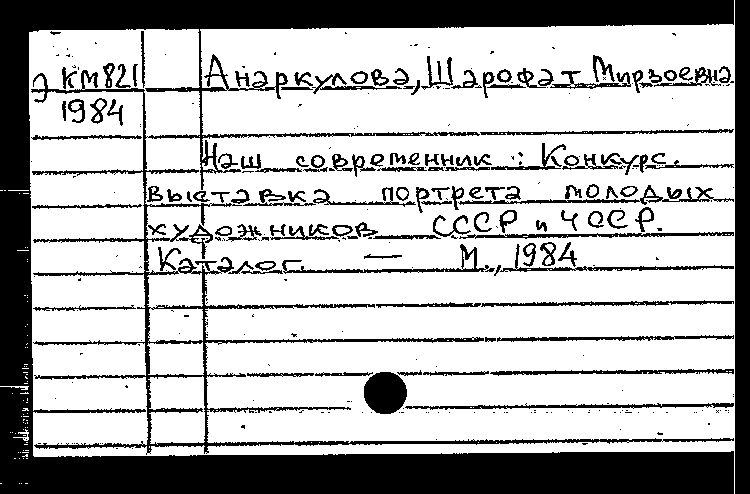 э КМ821 Анаркулова, Шарофат Мирзоевна
1984
Наш современник : Конкурс.
выставка портрета молодых
художников СССР и ЧССР.
Каталог. — М., 1984